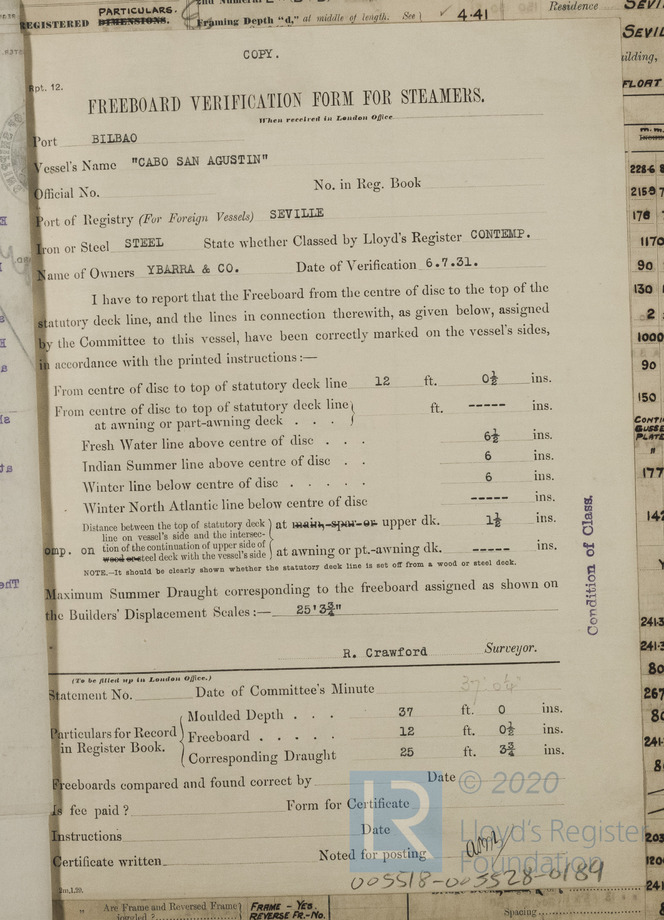 PARTICULARS.
REGISTERED DIMENSIONS.
Framing Depth "d," at middle of length. See
4.41
Residence
COPY.
Rpt. 12.
FREEBOARD VERIFICATION FORM FOR STEAMERS.
When received in London Office
Port BILBAO
Vessel's Name "CABO SAN AGUSTIN"
Official No. No. in Reg. Book
Port of Registry (For Foreign Vessels) SEVILLE
Iron or Steel STEEL State whether Classed by Lloyd's Register CONTEMP.
Name of Owners YBARRA & CO. Date of Verification 6.7.31.
I have to report that the Freeboard from the centre of disc to the top of the
statutory deck line, and the lines in connection therewith, as given below, assigned
by the Committee to this vessel, have been correctly marked on the vessel's sides,
in accordance with the printed instructions :—
From centre of disc to top of statutory deck line 12 ft. 0½ ins.
From centre of disc to top of statutory deck line
at awning or part-awning deck . . . ft. ----- ins.
Fresh Water line above centre of disc . . . 6½ ins.
Indian Summer line above centre of disc . . 6 ins.
Winter line below centre of disc . . . . . 6 ins.
Winter North Atlantic line below centre of disc ----- ins.
Distance between the top of statutory deck
line on vessel's side and the intersec-
at main, spar or upper dk. 1½ ins.
omp. on tion of the continuation of upper side of
wood or steel deck with the vessel's side
at awning or pt.-awning dk. ----- ins.
NOTE.—It should be clearly shown whether the statutory deck line is set off from a wood or steel deck.
Maximum Summer Draught corresponding to the freeboard assigned as shown on
the Builders' Displacement Scales :— 25'3¾"
R. Crawford Surveyor.
Condition of Class.
(To be filled up in London Office.)
Statement No. Date of Committee's Minute
37' 0¼"
Particulars for Record
in Register Book.
Moulded Depth . . . 37 ft. 0 ins.
Freeboard . . . . . 12 ft. 0½ ins.
Corresponding Draught 25 ft. 3¾ ins.
Freeboards compared and found correct by Date
Is fee paid ? Form for Certificate
Instructions Date
Certificate written Noted for posting
© 2020
LR
Lloyd's Register
Foundation
005518-005528-0189
2m,1,29.
Are Frame and Reversed Frame
FRAME - YES.
REVERSE FR.-NO.
Spacing
FLORT
228.6
178
1170
90
130
2
1000
90
150
177
241.3
241.3
80
267